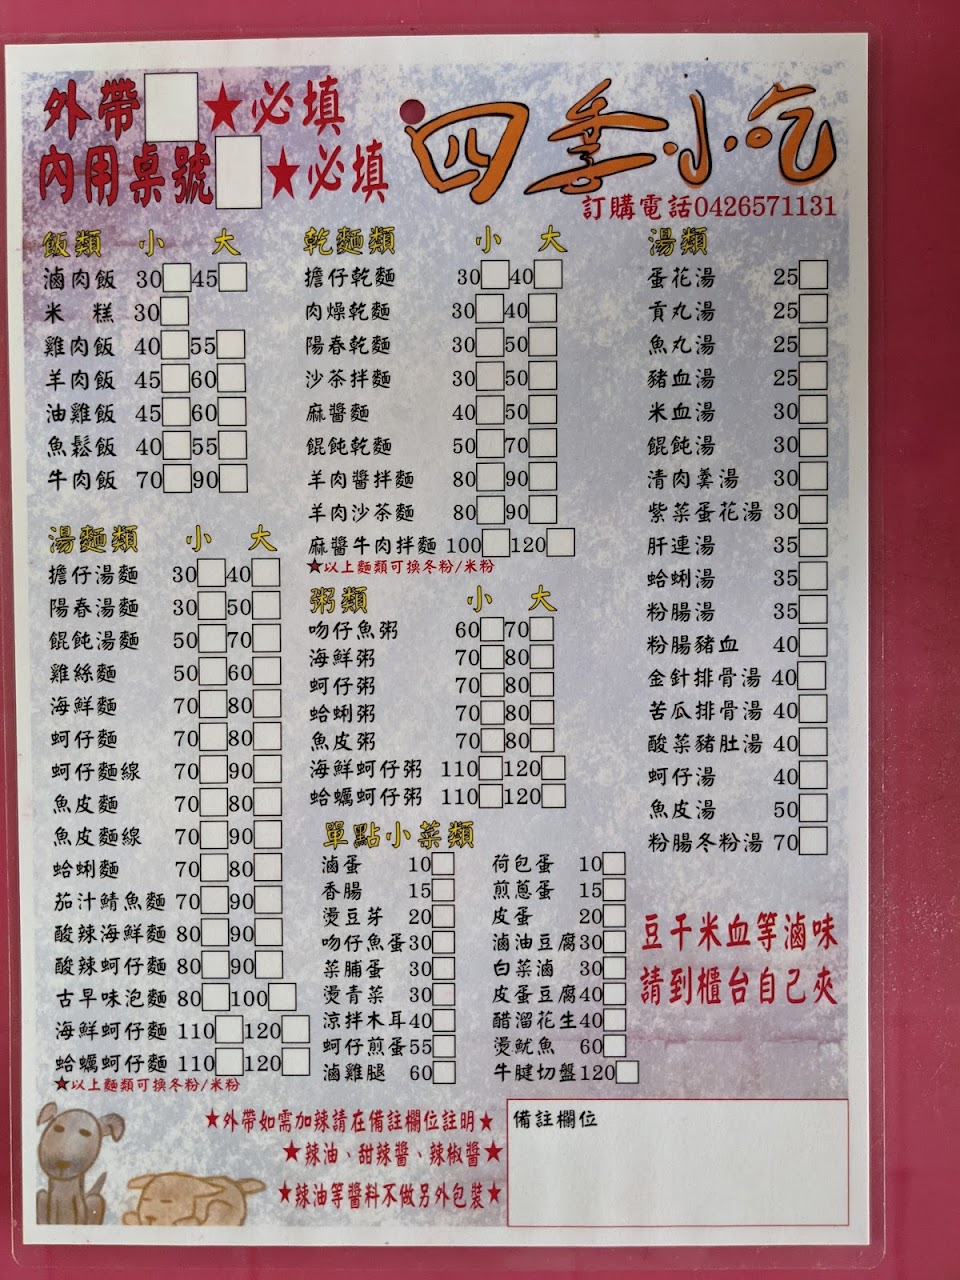 外帶 ★必填
內用桌號 ★必填
四季小吃
訂購電話0426571131
飯類 小 大
滷肉飯 30 45
米糕 30
雞肉飯 40 55
羊肉飯 45 60
油雞飯 45 60
魚鬆飯 40 55
牛肉飯 70 90
湯麵類 小 大
擔仔湯麵 30 40
陽春湯麵 30 50
餛飩湯麵 50 70
雞絲麵 50 60
海鮮麵 70 80
蚵仔麵 70 80
蚵仔麵線 70 90
魚皮麵 70 80
魚皮麵線 70 90
蛤蜊麵 70 80
茄汁鯖魚麵 70 90
酸辣海鮮麵 80 90
酸辣蚵仔麵 80 90
古早味泡麵 80 100
海鮮蚵仔麵 110 120
蛤蠣蚵仔麵 110 120
★以上麵類可換冬粉/米粉
乾麵類 小 大
擔仔乾麵 30 40
肉燥乾麵 30 40
陽春乾麵 30 50
沙茶拌麵 30 50
麻醬麵 40 50
餛飩乾麵 50 70
羊肉醬拌麵 80 90
羊肉沙茶麵 80 90
麻醬牛肉拌麵 100 120
★以上麵類可換冬粉/米粉
粥類 小 大
吻仔魚粥 60 70
海鮮粥 70 80
蚵仔粥 70 80
蛤蜊粥 70 80
魚皮粥 70 80
海鮮蚵仔粥 110 120
蛤蠣蚵仔粥 110 120
單點小菜類
滷蛋 10 荷包蛋 10
香腸 15 煎蔥蛋 15
燙豆芽 20 皮蛋 20
吻仔魚蛋 30 滷油豆腐 30
菜脯蛋 30 白菜滷 30
燙青菜 30 皮蛋豆腐 40
涼拌木耳 40 醋溜花生 40
蚵仔煎蛋 55 燙魷魚 60
滷雞腿 60 牛腱切盤 120
湯類
蛋花湯 25
貢丸湯 25
魚丸湯 25
豬血湯 25
米血湯 30
餛飩湯 30
清肉羹湯 30
紫菜蛋花湯 30
肝連湯 35
蛤蜊湯 35
粉腸湯 35
粉腸豬血 40
金針排骨湯 40
苦瓜排骨湯 40
酸菜豬肚湯 40
蚵仔湯 40
魚皮湯 50
粉腸冬粉湯 70
豆干米血等滷味
請到櫃台自己夾
★外帶如需加辣請在備註欄位註明★
★辣油、甜辣醬、辣椒醬★
★辣油等醬料不做另外包裝★
備註欄位